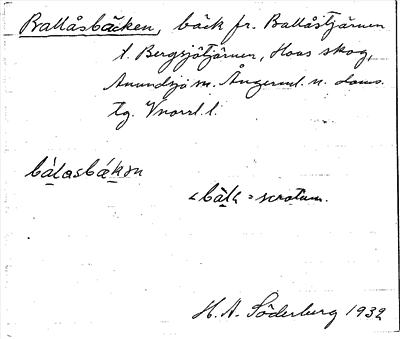 Ballåsbäcken, bäck fr. Ballåstjärnen
t. Bergsjötjärnen, Hoas skog,
Anundsjö sn. Ångerml. n. doms.
tg. Vnorrl. l.
bàlasbǽkɜn
< bàlä = scrotum.
H. A. Söderberg 1932